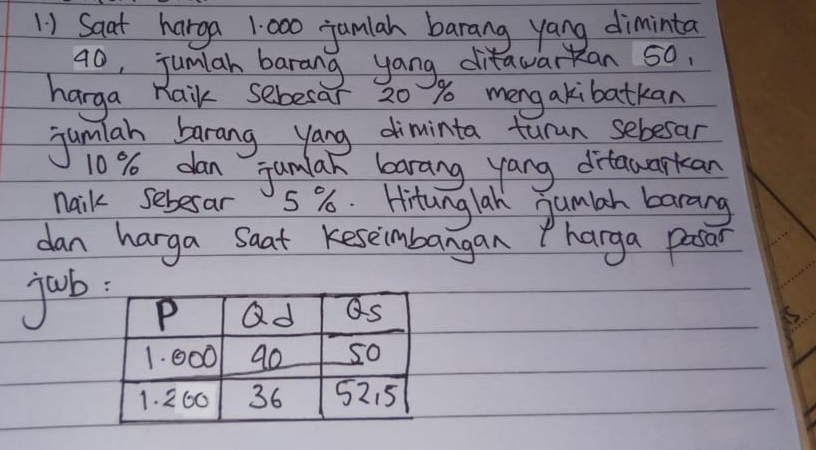 1.) Saat harga 1.000 jumlah barang yang diminta
40, jumlah barang yang ditawarkan 50,
harga naik sebesar 20 % mengakibatkan
jumlah barang yang diminta turun sebesar
10 % dan jumlah barang yang ditawarkan
naik sebesar 5 %. Hitunglah jumlah barang
dan harga saat keseimbangan / harga pasar
jwb :
P Qd Qs
1.000 40 50
1.200 36 52,5